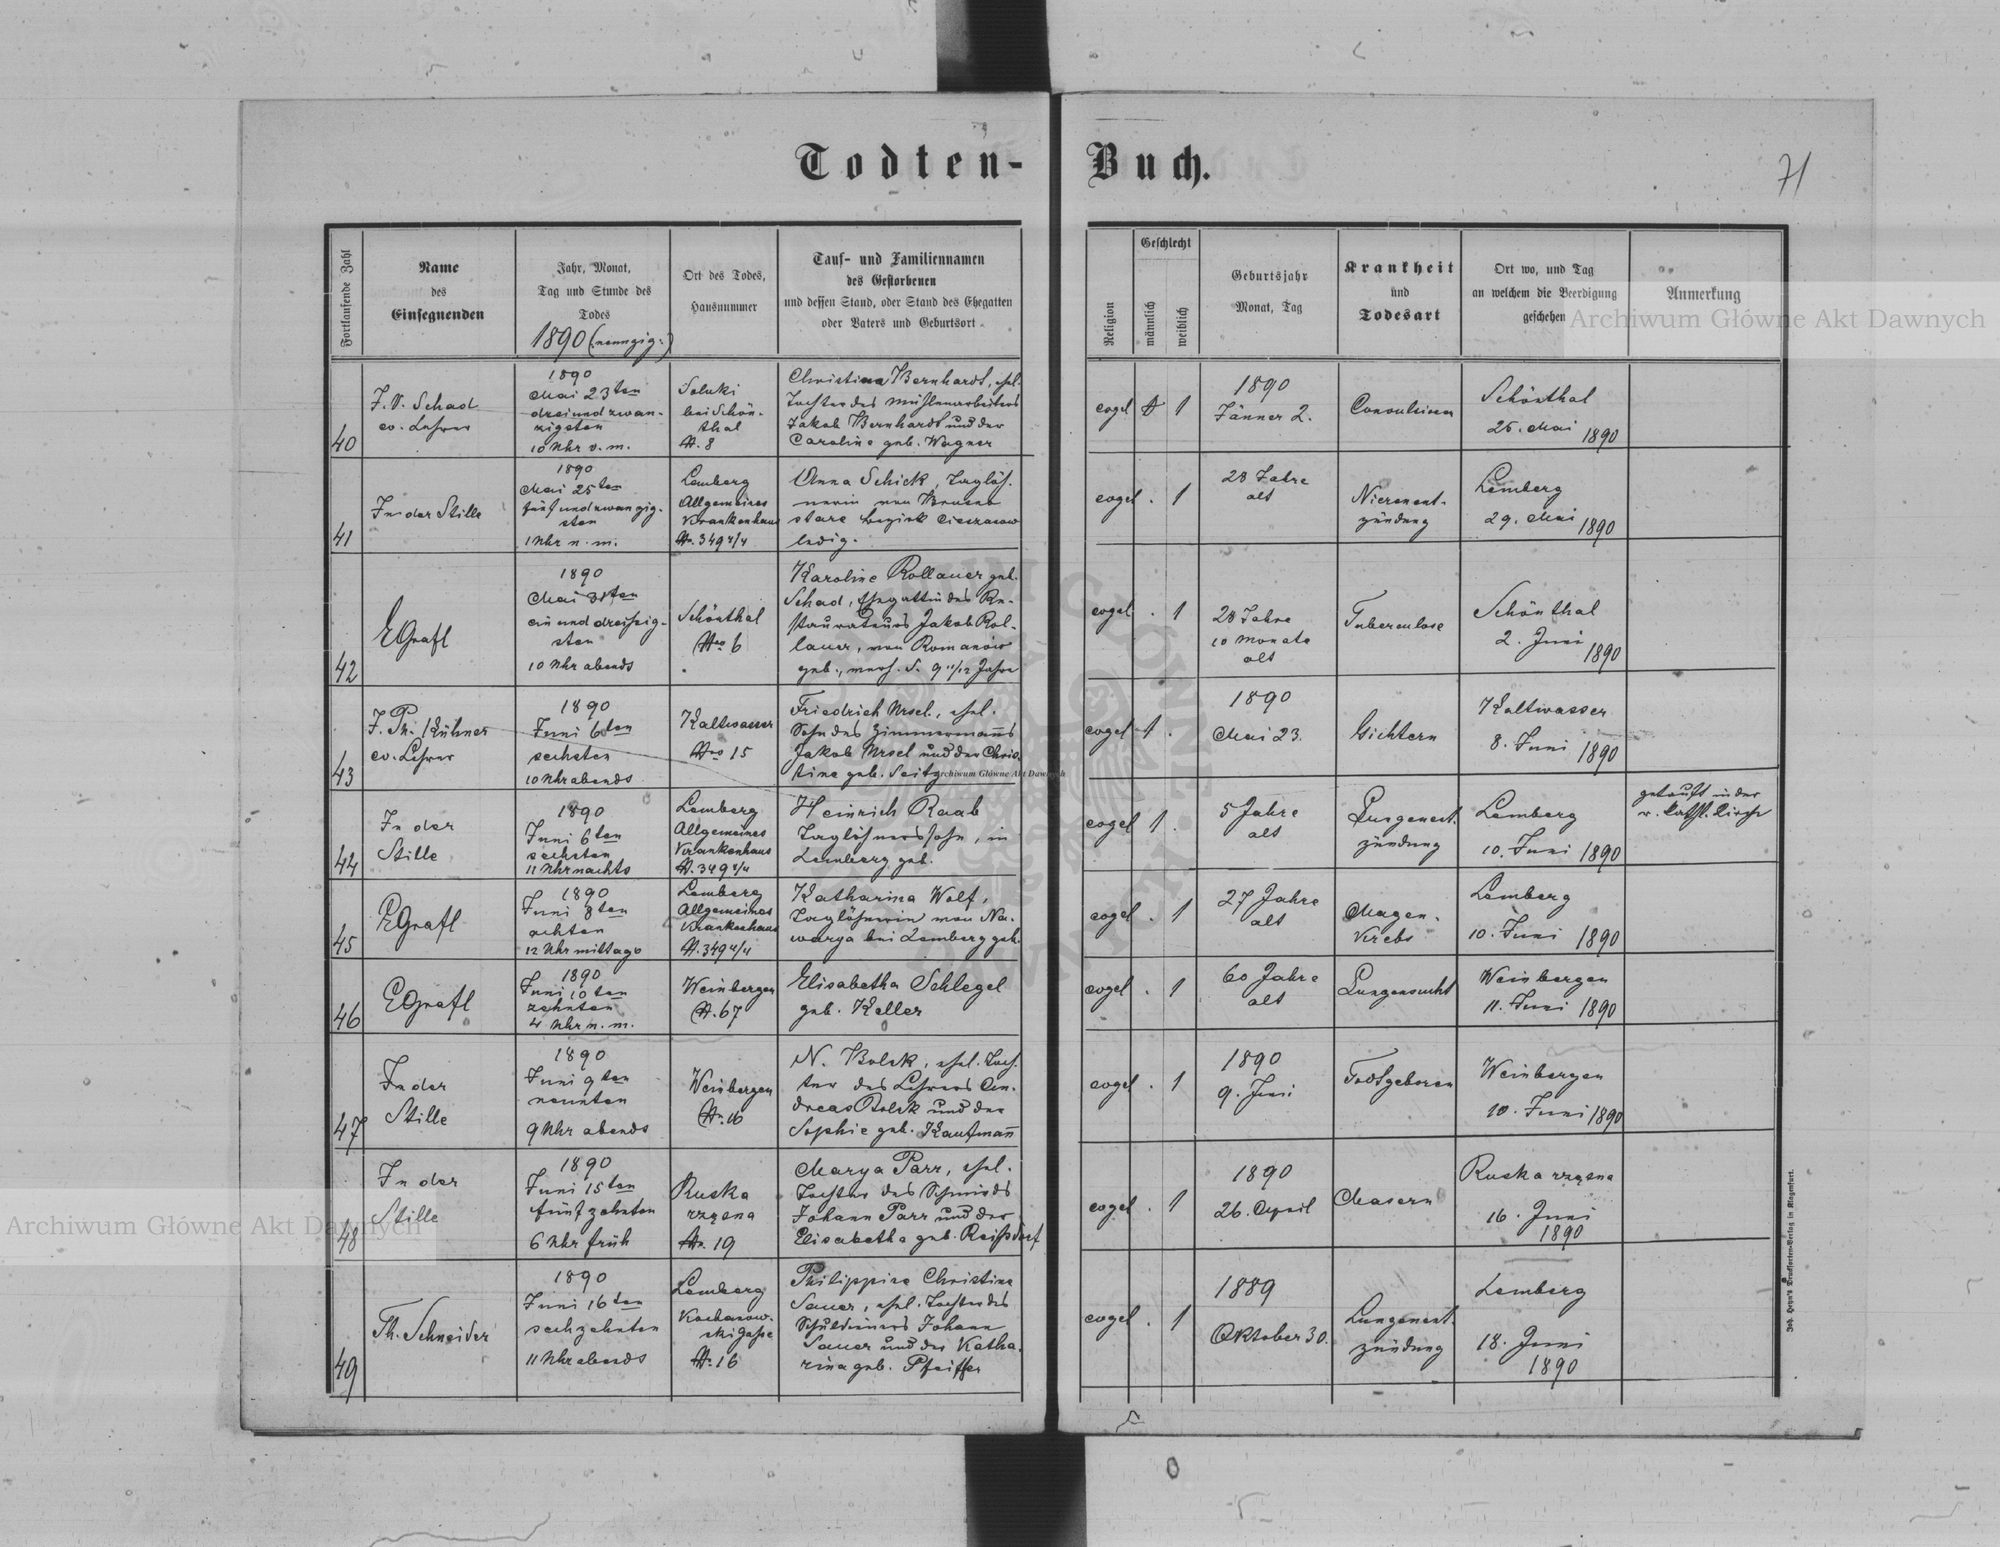 Todten-
Buch.
71
Fortlaufende Zahl
Name
des
Einsegnenden
Jahr, Monat,
Tag und Stunde des
Todes
1890 (neunzig.)
Ort des Todes,
Hausnummer
Tauf- und Familiennamen
des Gestorbenen
und dessen Stand, oder Stand des Ehegatten
oder Vaters und Geburtsort
Religion
Geschlecht
männlich
weiblich
Geburtsjahr
Monat, Tag
Krankheit
und
Todesart
Ort wo, und Tag
an welchem die Beerdigung
geschehen
Anmerkung
40
J. V. Schad
ev. Lehrer
1890
Mai 23ten
dreiundzwan-
zigsten
10 Uhr v. m.
Seluki
bei Schön-
thal
№. 8
Christina Bernhardt, ehel.
Tochter des Mühlenarbeiters
Jakob Bernhardt und der
Caroline geb. Wagner
evgel
1
1890
Jänner 2.
Convulsionen
Schönthal
25. Mai 1890
41
In der Stille
1890
Mai 25ten
fünfundzwanzig-
sten
1 Uhr n. m.
Lemberg
Allgemeines
Krankenhaus
№. 349 4/4
Anna Schick, Taglöh-
nerin von Brusno
stare bezirk Cieszanow
ledig.
evgel . 1
28 Jahre
alt
Nierenent-
zündung
Lemberg
29. Mai 1890
42
EGrafl
1890
Mai 31ten
ein und dreißig-
sten
10 Uhr abends
Schönthal
Nro 6
Karoline Rollauer geb.
Schad, Ehegattin des Re-
staurateurs Jakob Rol-
lauer, von Romanów
geb., verh. s. 9 11/12 Jahre
evgel . 1
28 Jahre
10 Monate
alt
Tuberculose
Schönthal
2. Juni 1890
43
J. Ph. Kühner
ev. Lehrer
1890
Juni 6ten
sechsten
10 Uhr abends
Kaltwasser
Nro 15
Friedrich Ursel, ehel.
Sohn des Zimmermanns
Jakob Ursel und der Chris-
tine geb. Seitz
evgel 1 .
1890
Mai 23.
Gichtern
Kaltwasser
8. Juni 1890
44
In der
Stille
1890
Juni 6ten
sechsten
11 Uhr nachts
Lemberg
Allgemeines
Krankenhaus
№. 349 4/4
Heinrich Raab
Taglöhnerssohn, in
Lemberg geb.
evgel 1 .
5 Jahre
alt
Lungenent-
zündung
Lemberg
10. Juni 1890
getauft in der
r. kathl. Kirche
45
EGrafl
1890
Juni 8ten
achten
12 Uhr mittags
Lemberg
Allgemeines
Krankenhaus
№. 349 4/4
Katharina Wolf,
Taglöhnerin von Na-
warya bei Lemberg geb.
evgel . 1
27 Jahre
alt
Magen-
Krebs
Lemberg
10. Juni 1890
46
EGrafl
1890
Juni 10ten
zehnten
4 Uhr n. m.
Weinbergen
№. 67
Elisabetha Schlegel
geb. Keller
evgel . 1
60 Jahre
alt
Lungensucht
Weinbergen
11. Juni 1890
47
In der
Stille
1890
Juni 9ten
neunten
9 Uhr abends
Weinbergen
№. 16
N. Bolek, ehel. Toch-
ter des Lehrers An-
dreas Bolek und der
Sophie geb. Kaufmann
evgel . 1
1890
9. Juni
Todtgeboren
Weinbergen
10. Juni 1890
48
In der
Stille
1890
Juni 15ten
fünfzehnten
6 Uhr früh
Ruska
rzęsna
№. 19
Marya Parr, ehel.
Tochter des Schmieds
Johann Parr und der
Elisabetha geb. Reißdorf
evgel . 1
1890
26. April
Masern
Ruska rzęsna
16. Juni
1890
49
Th. Schneider
1890
Juni 16ten
sechzehnten
11 Uhr abends
Lemberg
Kochanow-
skigasse
№. 16
Philippine Christine
Sauer, ehel. Tochter des
Schuldieners Johann
Sauer und der Katha-
rina geb. Pfeiffer
evgel . 1
1889
Oktober 30.
Lungenent-
zündung
Lemberg
18. Juni
1890
Joh. Heyn's Drucksorten-Verlag in Klagenfurt.
Archiwum Główne Akt Dawnych
Archiwum Główne Akt Dawnych
Archiwum Główne Akt Dawnych